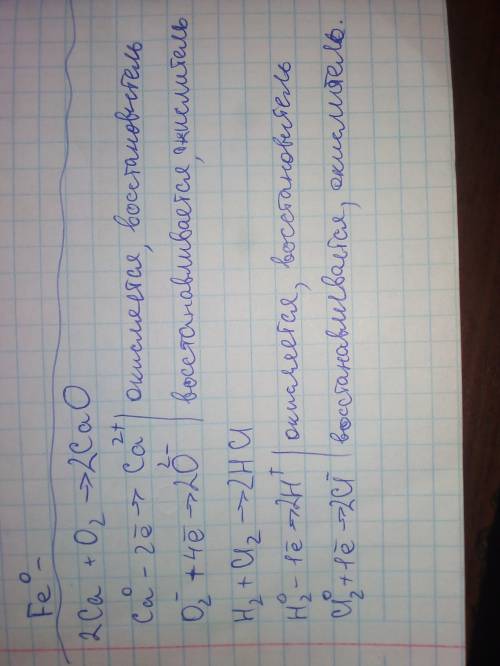 Fe⁰ –
2Ca + O₂ → 2CaO
Ca⁰ – 2ē → Ca²⁺ | окисляется, восстановитель
O₂⁻ + 4ē → 2O²⁻ | восстанавливается, окислитель
H₂ + Cl₂ → 2HCl
H₂⁰ – 1ē → 2H⁺ | окисляется, восстановитель
Cl₂⁰ + 1ē → 2Cl⁻ | восстанавливается, окислитель.